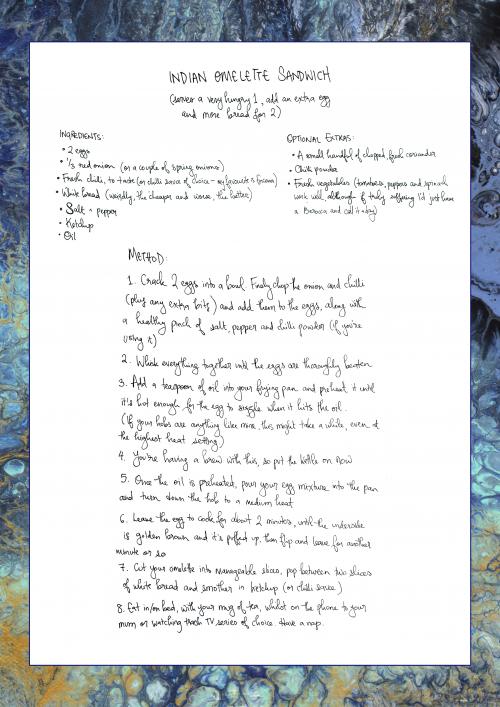 INDIAN OMELETTE SANDWICH
(serves a very hungry 1, add an extra egg
and more bread for 2)
INGREDIENTS:
• 2 eggs
• 1/3 red onion (or a couple of spring onions)
• Fresh chilli, to taste (or chilli sauce of choice - my favourite is
• White bread (weirdly, the cheaper and worse, the better)
• Salt + pepper
• Ketchup
• Oil
OPTIONAL EXTRAS:
• A small handful of chopped, fresh coriander
• Chilli powder
• Fresh vegetables (tomatoes, peppers and spinach
work well, although if truly suffering I'd just have
a Berocca and call it a day)
METHOD:
1. Crack 2 eggs into a bowl. Finely chop the onion and chilli
(plus any extra bits) and add them to the eggs, along with
a healthy pinch of salt, pepper and chilli powder (if you're
using it)
2. Whisk everything together until the eggs are thoroughly beaten
3. Add a teaspoon of oil into your frying pan and preheat it until
it's hot enough for the egg to sizzle when it hits the oil.
(If your hobs are anything like mine, this might take a while, even at
the highest heat setting)
4. You're having a brew with this, so put the kettle on now
5. Once the oil is preheated, pour your egg mixture into the pan
and turn down the hob to a medium heat
6. Leave the egg to cook for about 2 minutes, until the underside
is golden brown and it's puffed up, then flip and leave for another
minute or so
7. Cut your omelette into manageable slices, pop between two slices
of white bread and smother in ketchup (or chilli sauce)
8. Eat in/on bed, with your mug of tea, whilst on the phone to your
mum or watching trash TV series of choice. Have a nap.